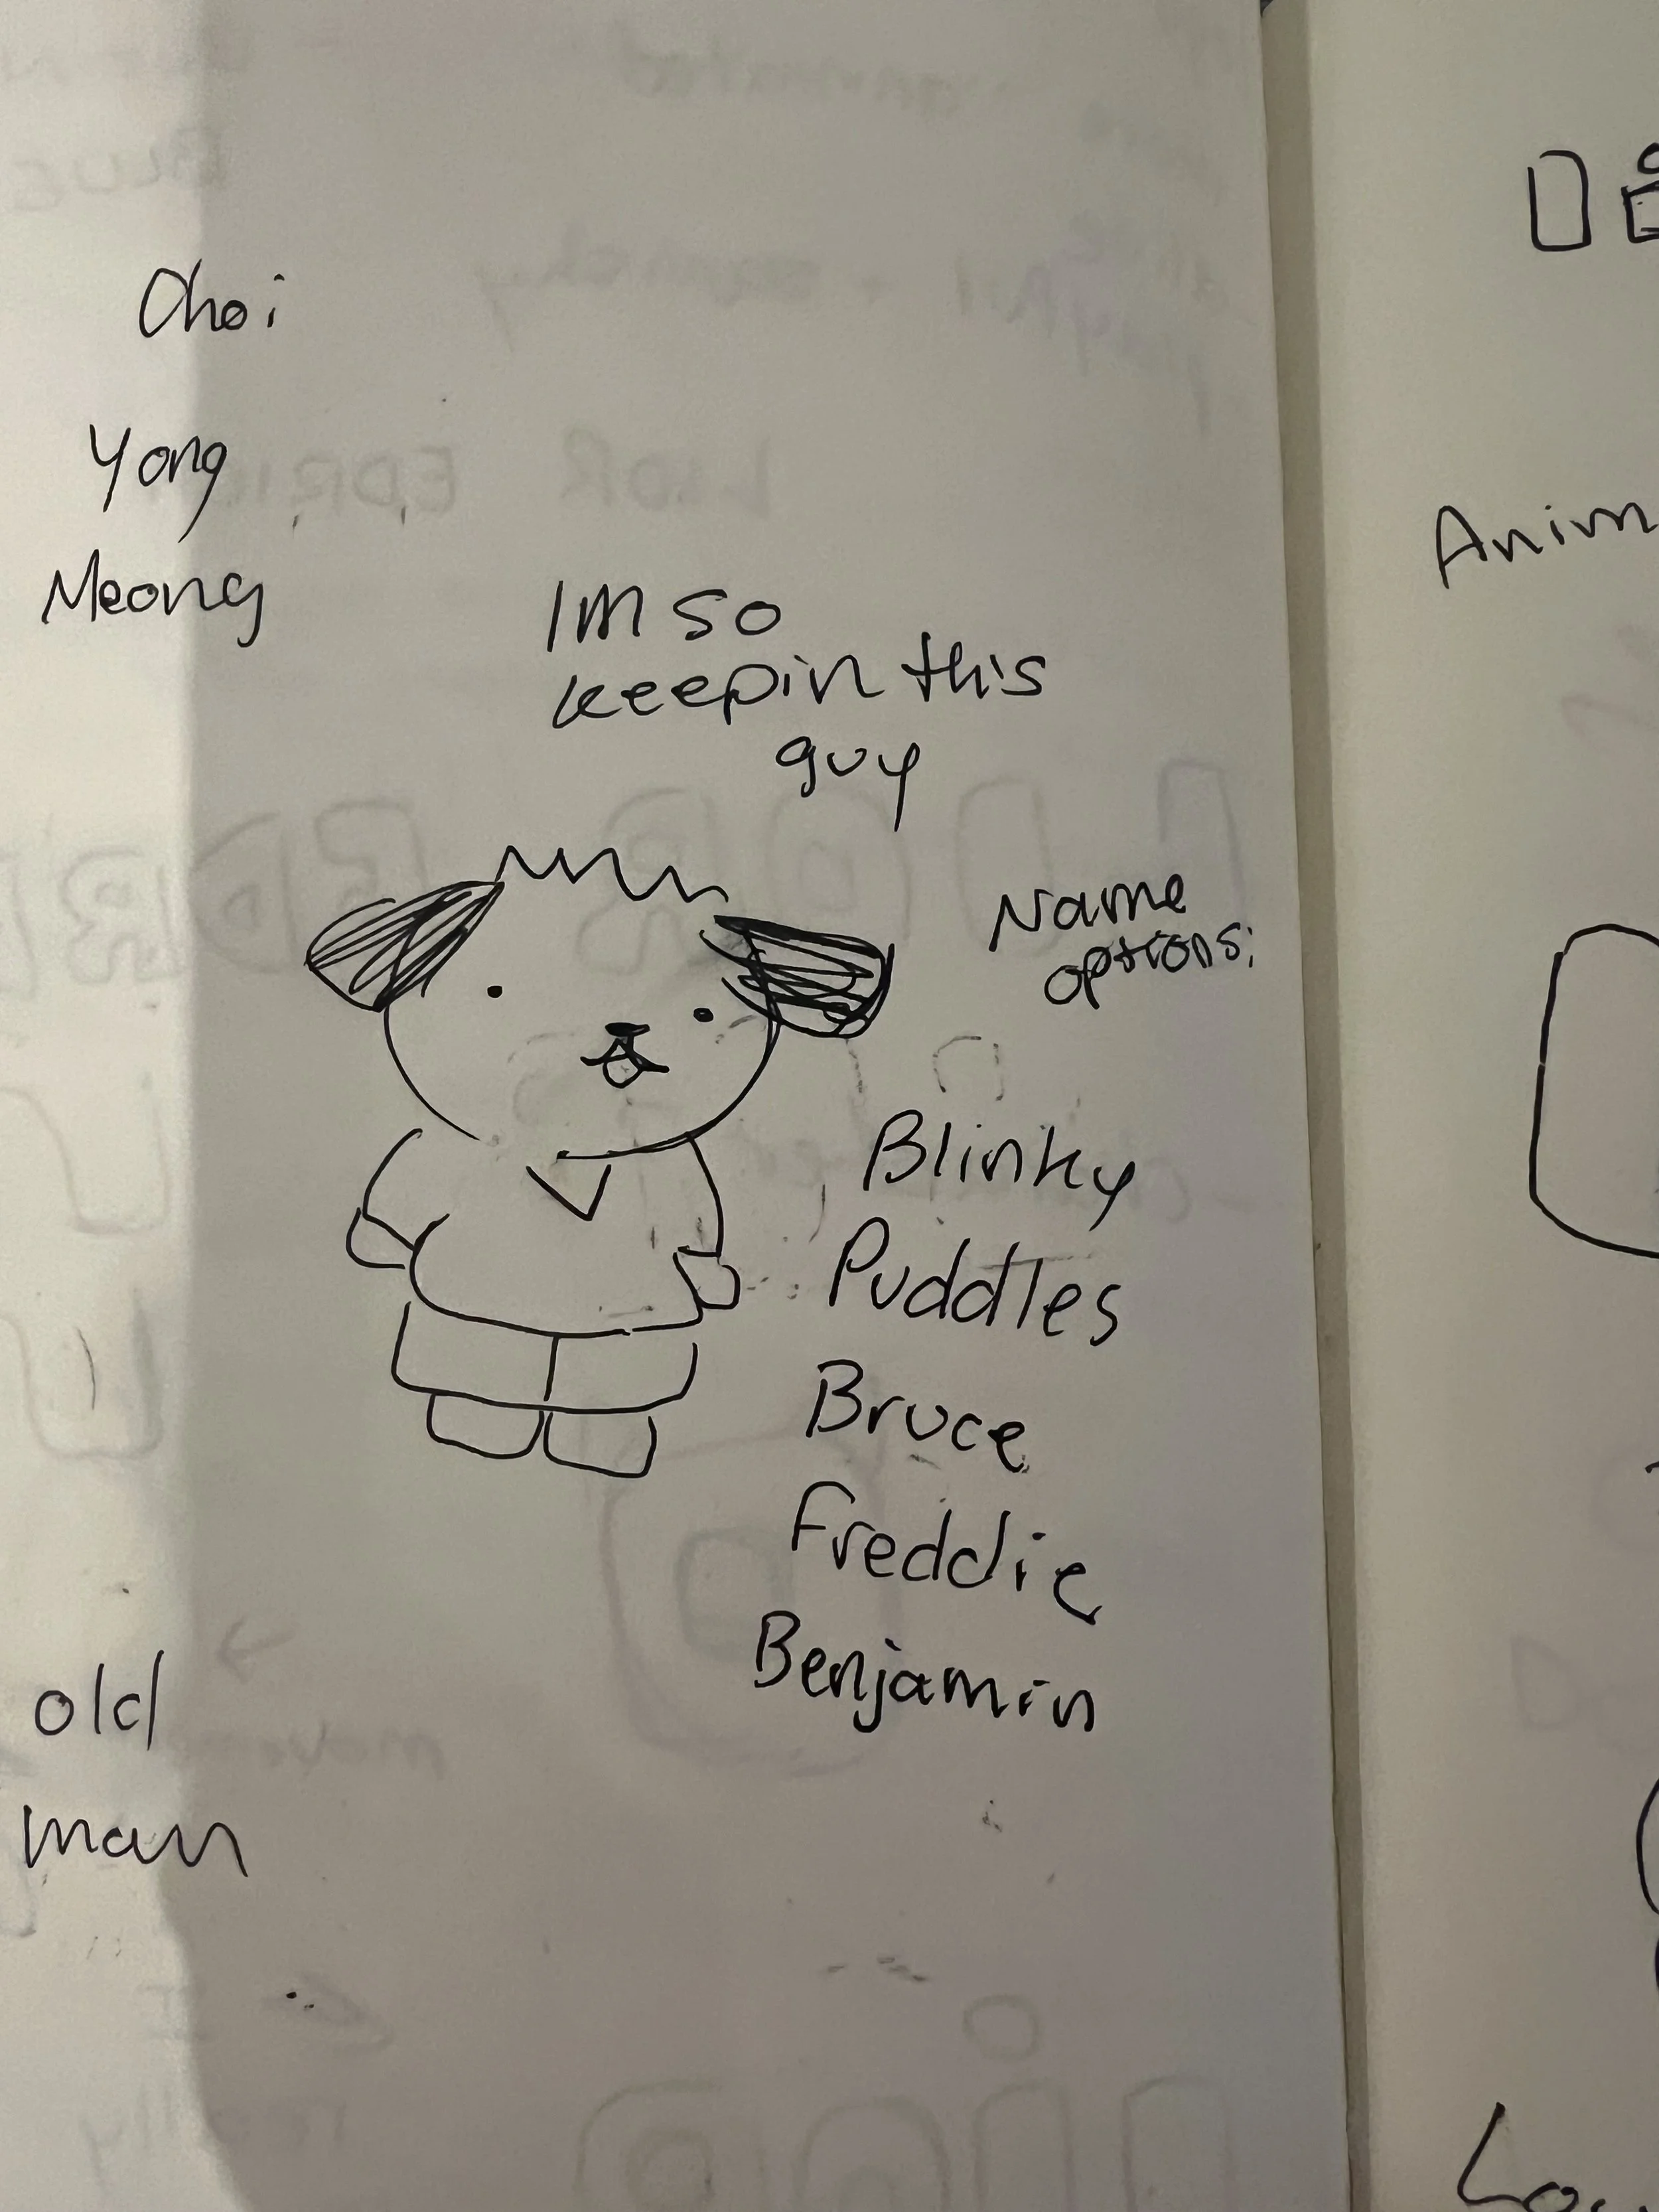 Choi
Yong
Meong
IM SO
keepin this
guy
Name
options:
Blinky
Puddles
Bruce
Freddie
Benjamin
old
man
Anim